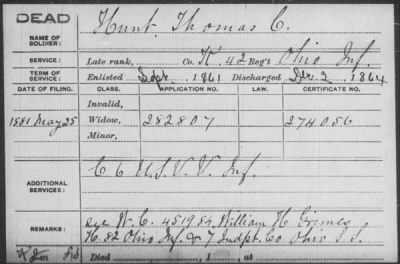 DEAD
NAME OF SOLDIER: Hunt, Thomas C.
SERVICE: Late rank, Co. K, 42 Reg't Ohio Inf.
TERM OF SERVICE: Enlisted Sept. 1861 Discharged Dec. 2, 1864
DATE OF FILING. CLASS. APPLICATION NO. LAW. CERTIFICATE NO.
Invalid,
1881 May 25 Widow, 282807 274056
Minor,
ADDITIONAL SERVICES: C 6 U.S.V.V. Inf.
REMARKS: W.C. 451984, William H Grimes
K. 82 Ohio Inf. & 7 Indpt. Co Ohio S.S.
Died , 1 , at